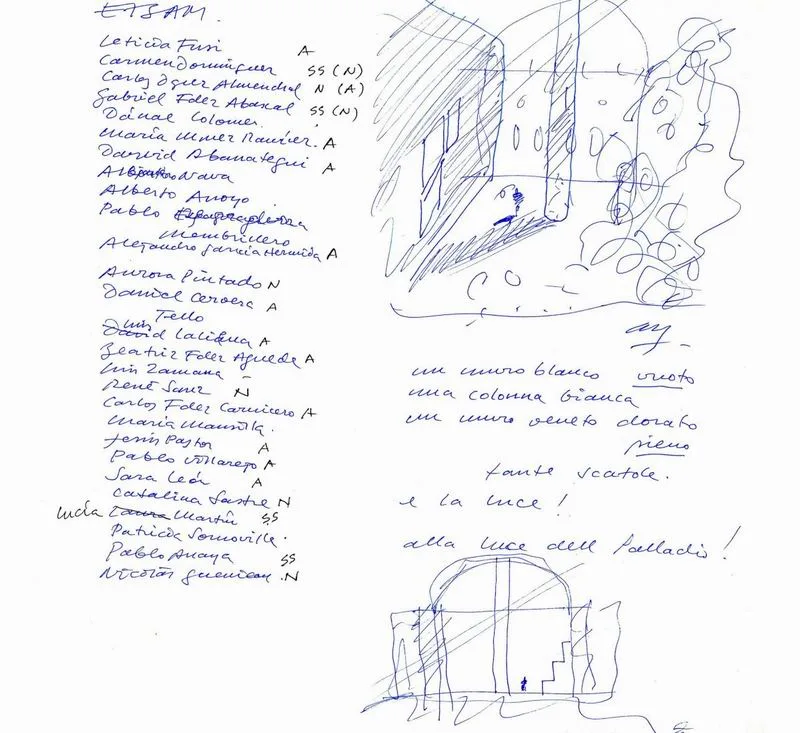 ETSAM.
Leticia Fusi A
Carmen Domínguez SS (N)
Carlos Almendral N (A)
Gabriel Fdez Abascal SS (N)
Dánae Colomer.
María Ramírez. A
David Abanategui A
Nava
Alberto Arroyo.
Pablo
Membrillero
Alejandro García Hermida A
Aurora Pintado N
Daniel Cervera A
Tello
Luis David Laliena A
Beatriz Fdez Agueda A
Luis Zamana -
René Sanz N
Carlos Fdez Carnicero A
María Mansilla.
Jesús Pastor A
Pablo Villarejo A
Sara León A
Catalina Sastre N
Lucía Laura Martín SS
Patricia Somoville.
Pablo Anaya SS
Nicolás .N
un muro blanco vuoto
una colonna bianca
un muro veneto dorato
pieno
tante scatole.
e la luce!
alla luce dell Palladio!